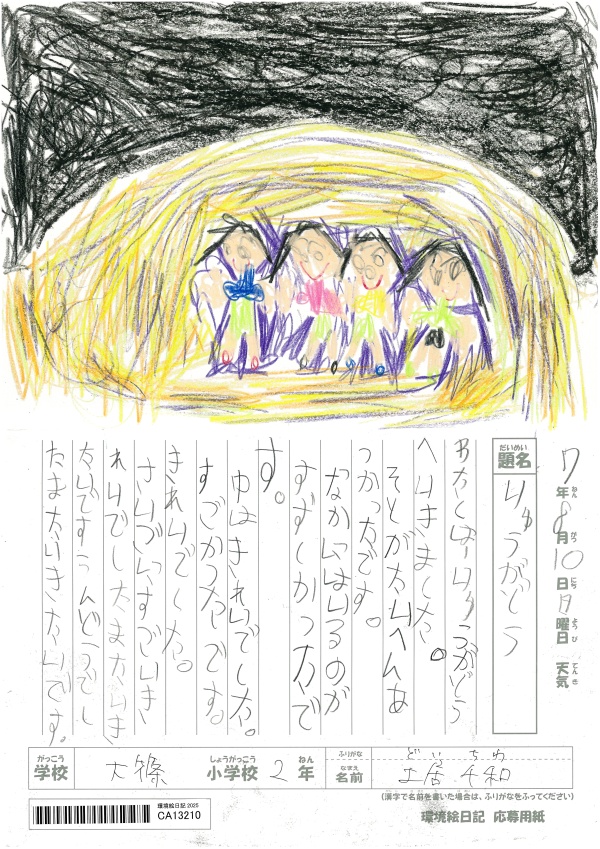 7年8月10日日曜日 天気
ねん がつ にち ようび てんき
だいめい
題名 りゅうがどう
わたしはりゅうがどう
へいきました。
そとがたいへんあ
つかったです。
なかにはいるのが
すずしかったで
す。
中はきれいでした。
すごかったです。
きれいでした。
さいごにすごいき
れいでしたまたいき
たいですうんどうでし
たまたいきたいです。
がっこう しょうがっこう ねん ふりがな どい ちわ
学校 大篠 小学校 2年 なまえ 名前 土居 千和
(漢字で名前を書いた場合は、ふりがなをふってください)
環境絵日記 2025
CA13210
環境絵日記 応募用紙